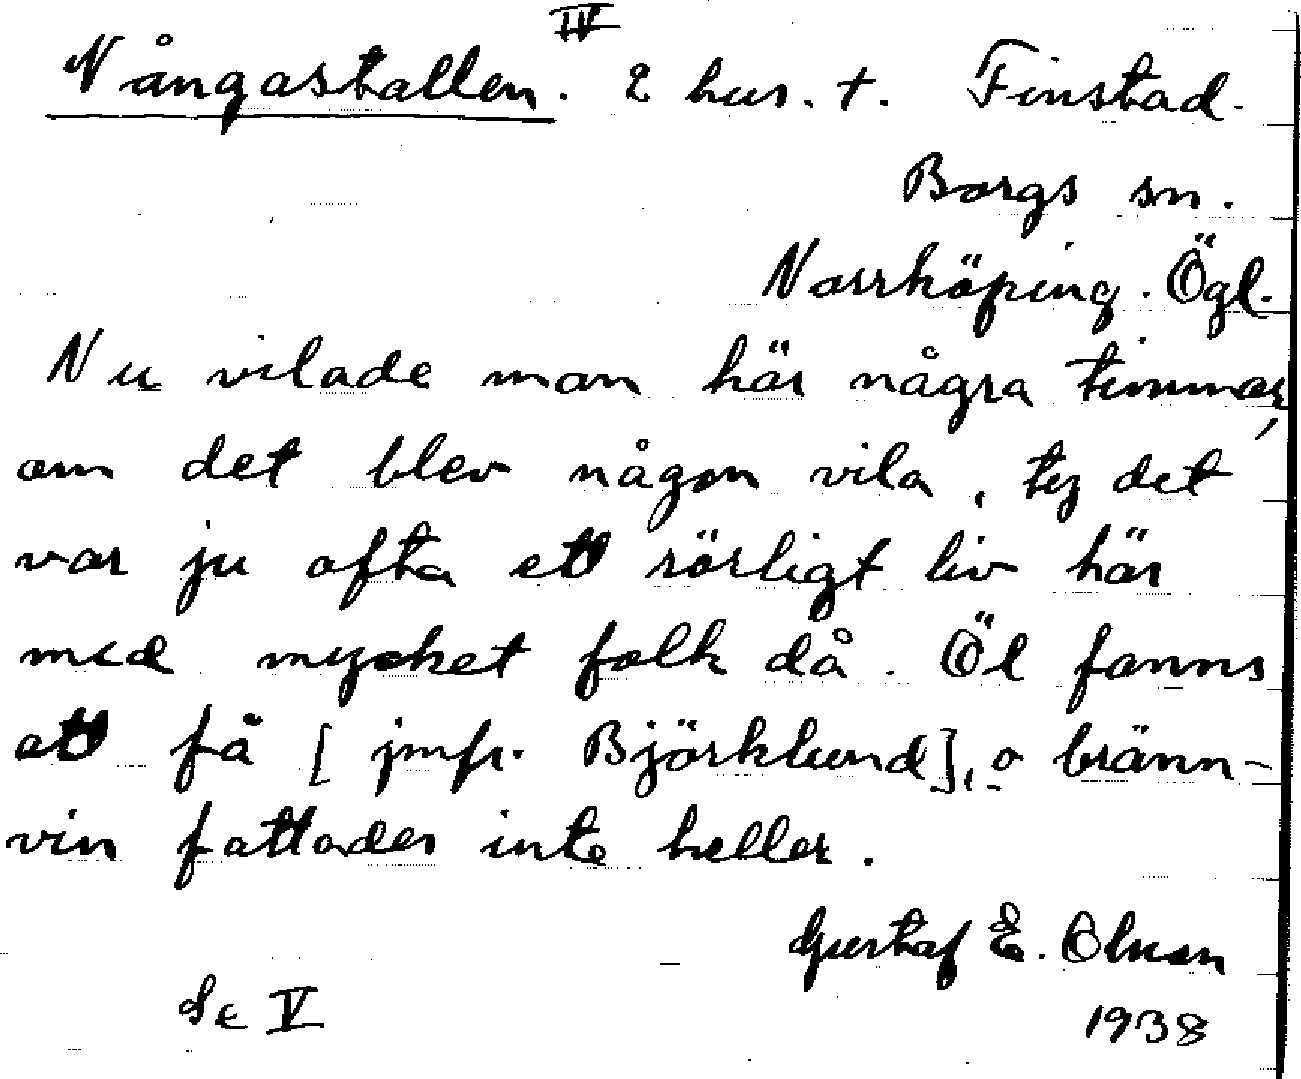 IV
Nångastallen. 2 hus. t. Finstad.
Borgs sn.
Norrköping. Ögl.
Nu vilade man här några timmar,
om det blev någon vila, ty det
var ju ofta ett rörligt liv här
med mycket folk då. Öl fanns
att få [jmfr. Björklund], o bränn-
vin fattades inte heller.
Gustaf E. Olsson
Se V
1938